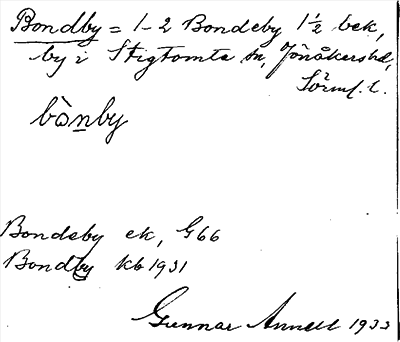 Bondby = 1-2 Bondeby 1½ bek,
by i Stigtomta sn, Jönåkers hd,
Sörml. l.
bònby
Bondeby ek, G66
Bondby kb 1931
Gunnar Annell 1933